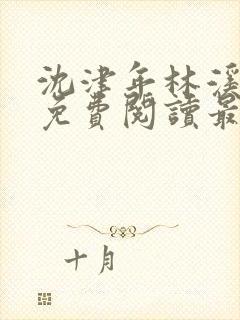 沈津年林溪
免費閱讀最
十月